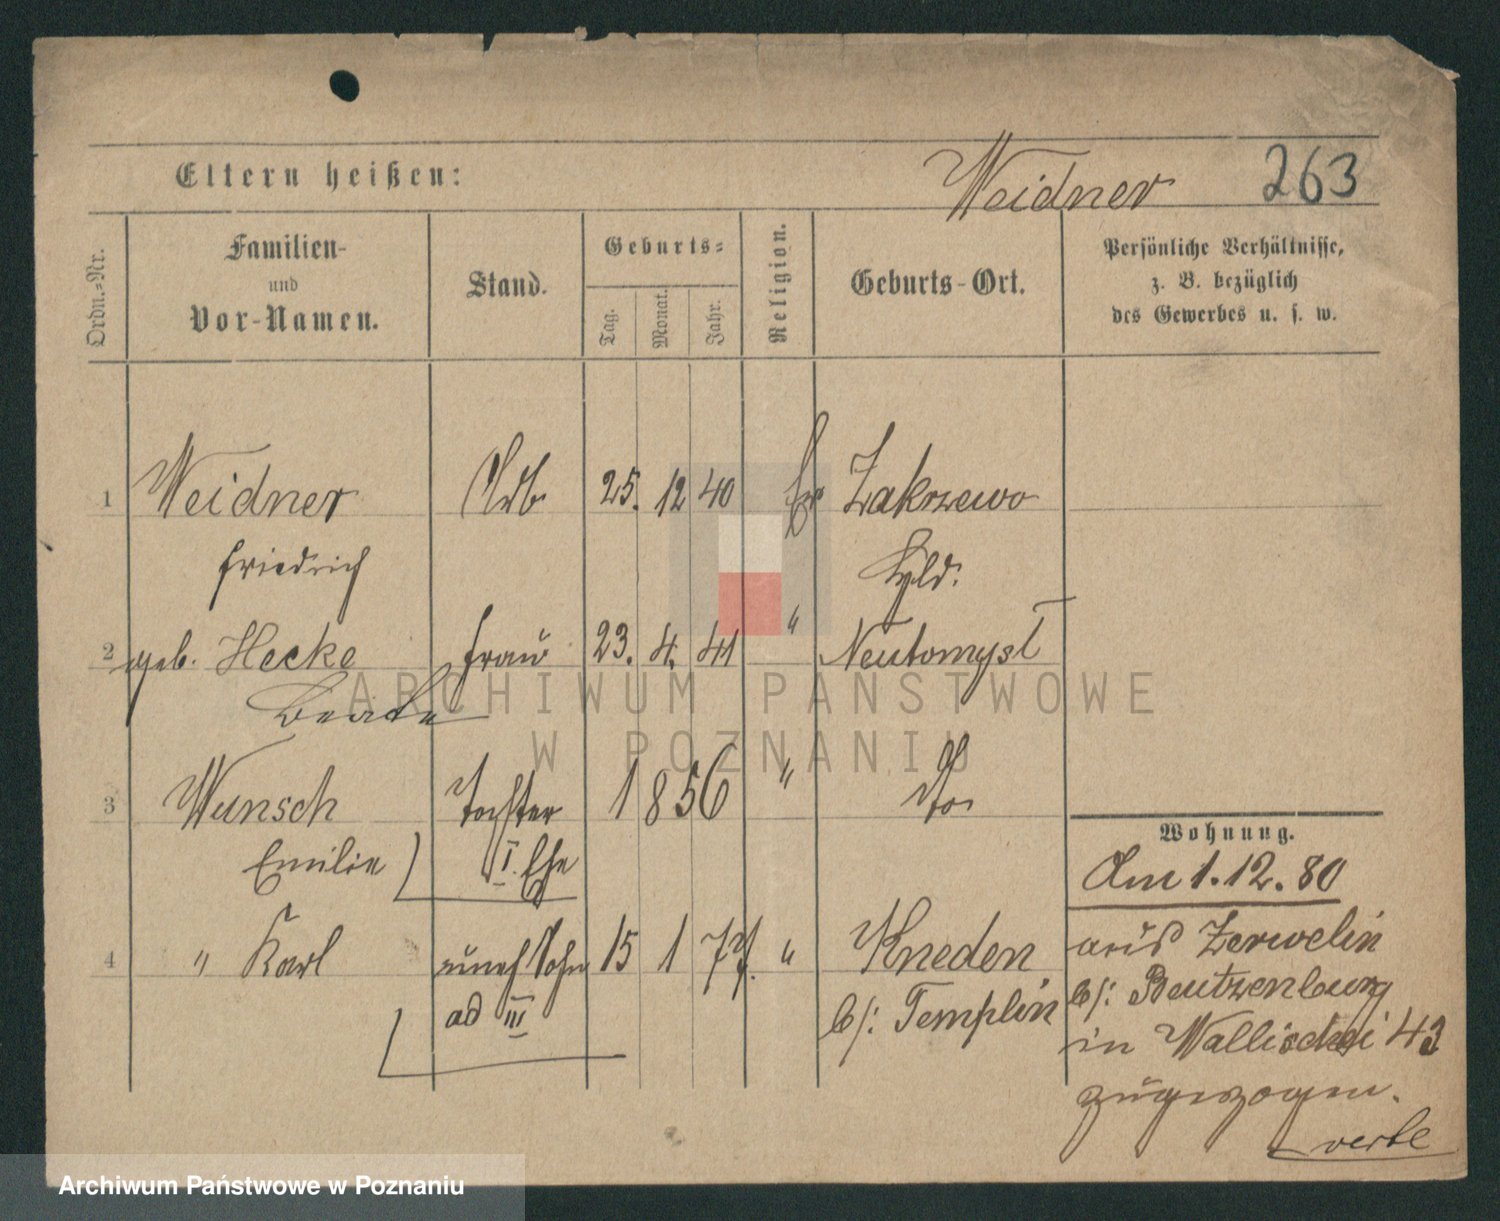 Eltern heißen:
Weidner 263
Ordn.-Nr.
Familien-
und
Vor-Namen.
Stand.
Geburts-
Tag.
Monat.
Jahr.
Religion.
Geburts-Ort.
Persönliche Verhältnisse,
z. B. bezüglich
des Gewerbes u. s. w.
1 Weidner Arb 25. 12 40 Ev Zakrzewo
Friedrich
2 geb. Hecke Frau 23. 4. 41 " Neutomysl
Beate
3 Wunsch Tochter 1856 " do
Emilie I. Ehe
4 " Karl unehl Sohn 15 1 77. " Kneden
ad III b/: Templin
Wohnung.
Am 1.12.80
aus Zerwelin
b/: Boutzenburg
in Wallischei 43
zugezogen.
verte
ARCHIWUM PAŃSTWOWE
W POZNANIU
Archiwum Państwowe w Poznaniu